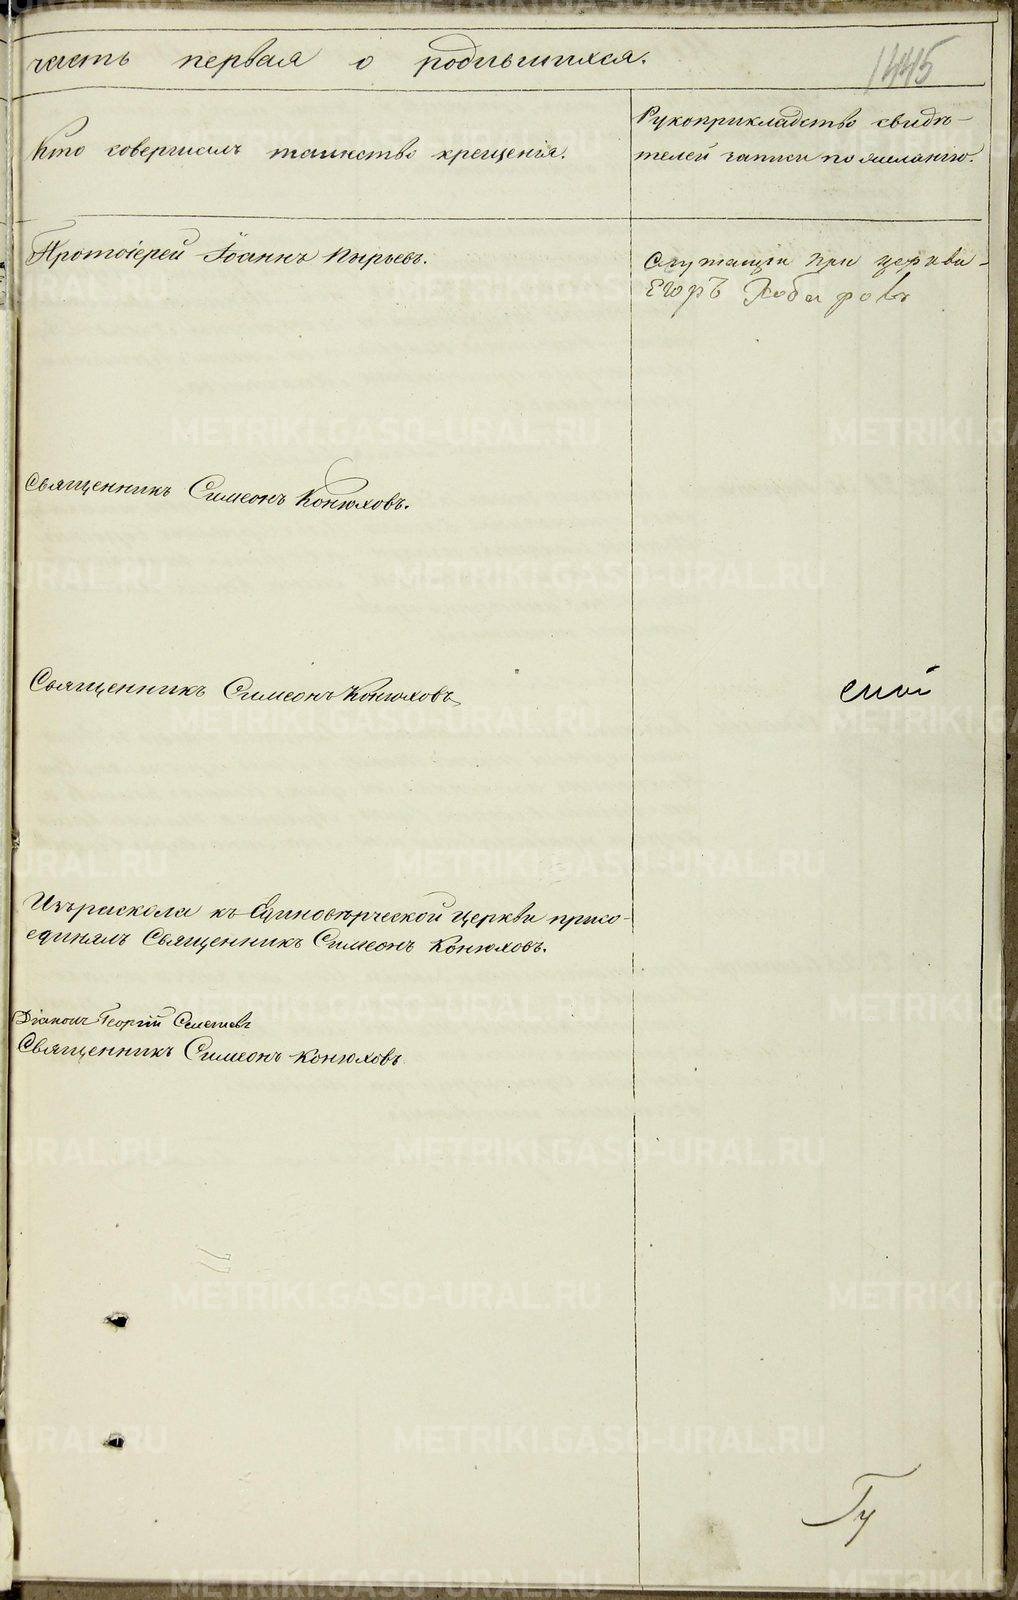 часть первая о родившихся.
1445
Кто совершилъ таинство крещенія.
Рукоприкладство свидѣ-
телей записи по желанію.
Протоіерей Іоаннъ Пырьевъ.
Служащіи при церкви
Егоръ
Священникъ Симеонъ Конюховъ.
Священникъ Симеонъ Конюховъ
Изъ раскола къ Единовѣрческой церкви присо-
единялъ Священникъ Симеонъ Конюховъ.
Діаконъ Георгій
Священникъ Симеонъ Конюховъ
METRIKI.GASO-URAL.RU